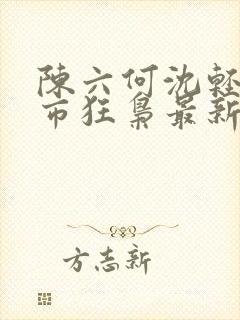 陳六何沈輕
市狂梟最新
方志新